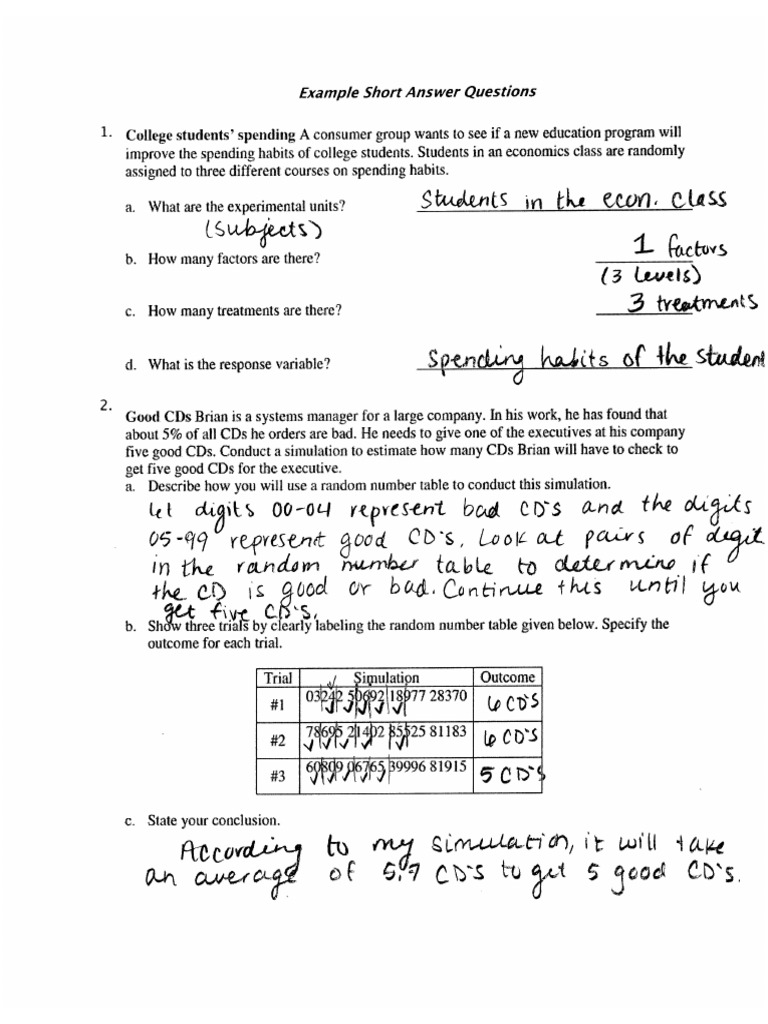 Example Short Answer Questions
1. College students' spending A consumer group wants to see if a new education program will
improve the spending habits of college students. Students in an economics class are randomly
assigned to three different courses on spending habits.
a. What are the experimental units? Students in the econ. class
(subjects)
b. How many factors are there? 1 factors
(3 levels)
c. How many treatments are there? 3 treatments
d. What is the response variable? Spending habits of the student
2. Good CDs Brian is a systems manager for a large company. In his work, he has found that
about 5% of all CDs he orders are bad. He needs to give one of the executives at his company
five good CDs. Conduct a simulation to estimate how many CDs Brian will have to check to
get five good CDs for the executive.
a. Describe how you will use a random number table to conduct this simulation.
let digits 00-04 represent bad CD's and the digits
05-99 represent good CD's. Look at pairs of digit
in the random number table to determine if
the CD is good or bad. Continue this until you
get five CD's.
b. Show three trials by clearly labeling the random number table given below. Specify the
outcome for each trial.
Trial Simulation Outcome
#1 03242 50692 18977 28370 6 CD'S
#2 78695 21402 85525 81183 6 CD's
#3 60809 06765 39996 81915 5 CD's
c. State your conclusion.
According to my simulation, it will take
an average of 5.7 CD's to get 5 good CD's.